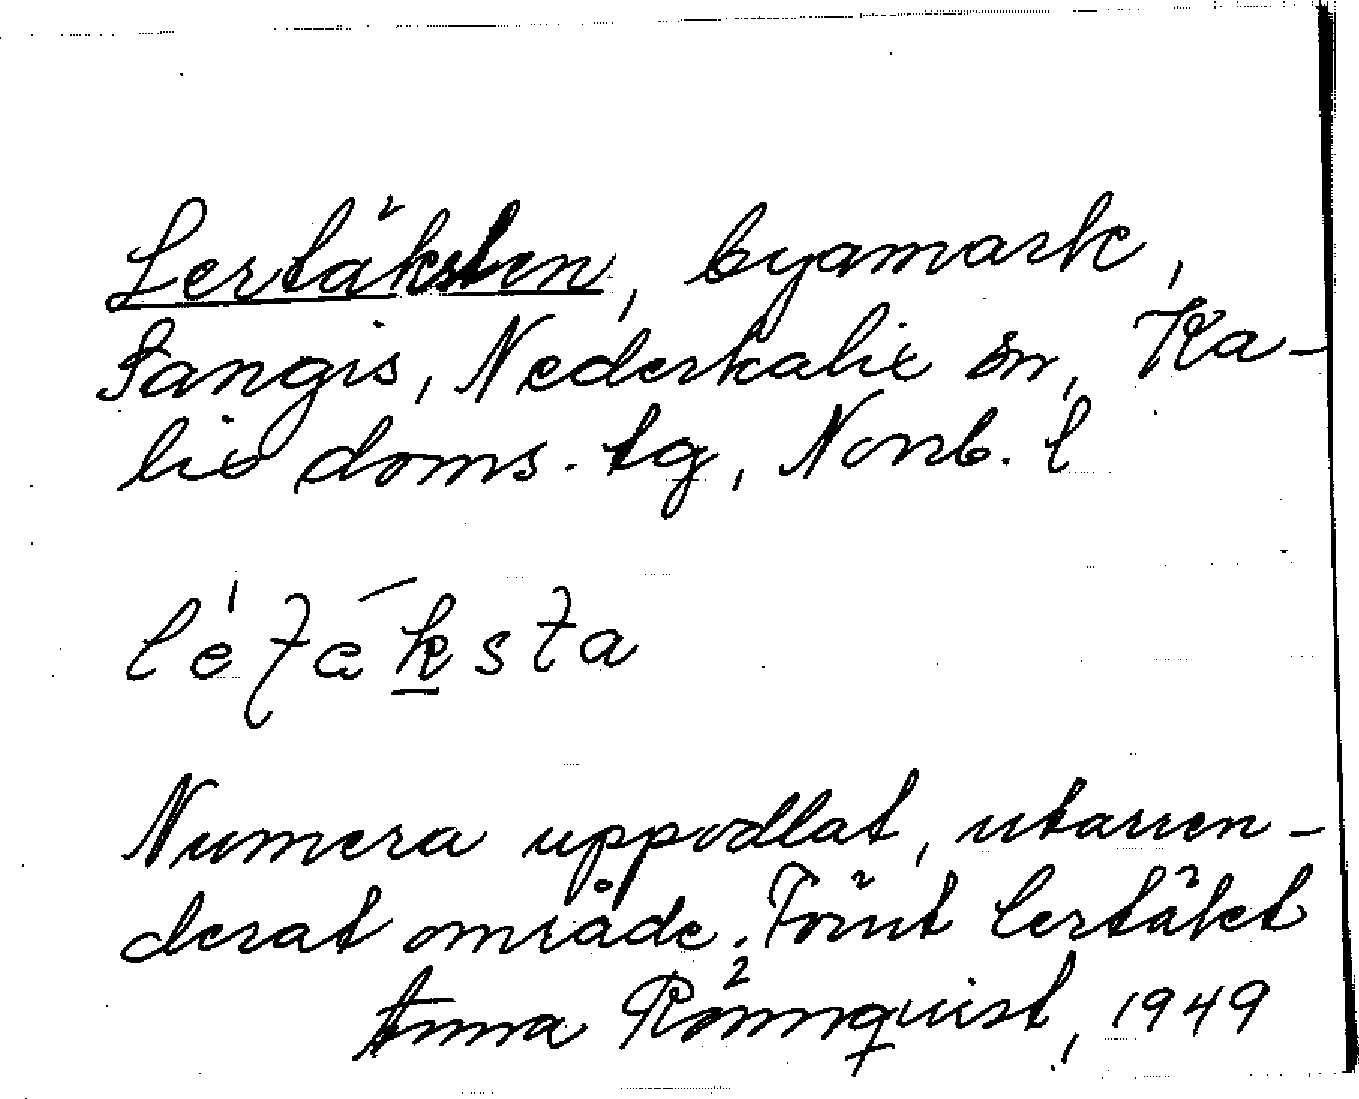 Lertäksten, byamark,
Sangis, Nederkalix sn, Ka-
lix doms. tg, Norrb. l
Numera uppodlat, utarren-
derat område. Förut lertäket
Anna Rönnquist, 1949